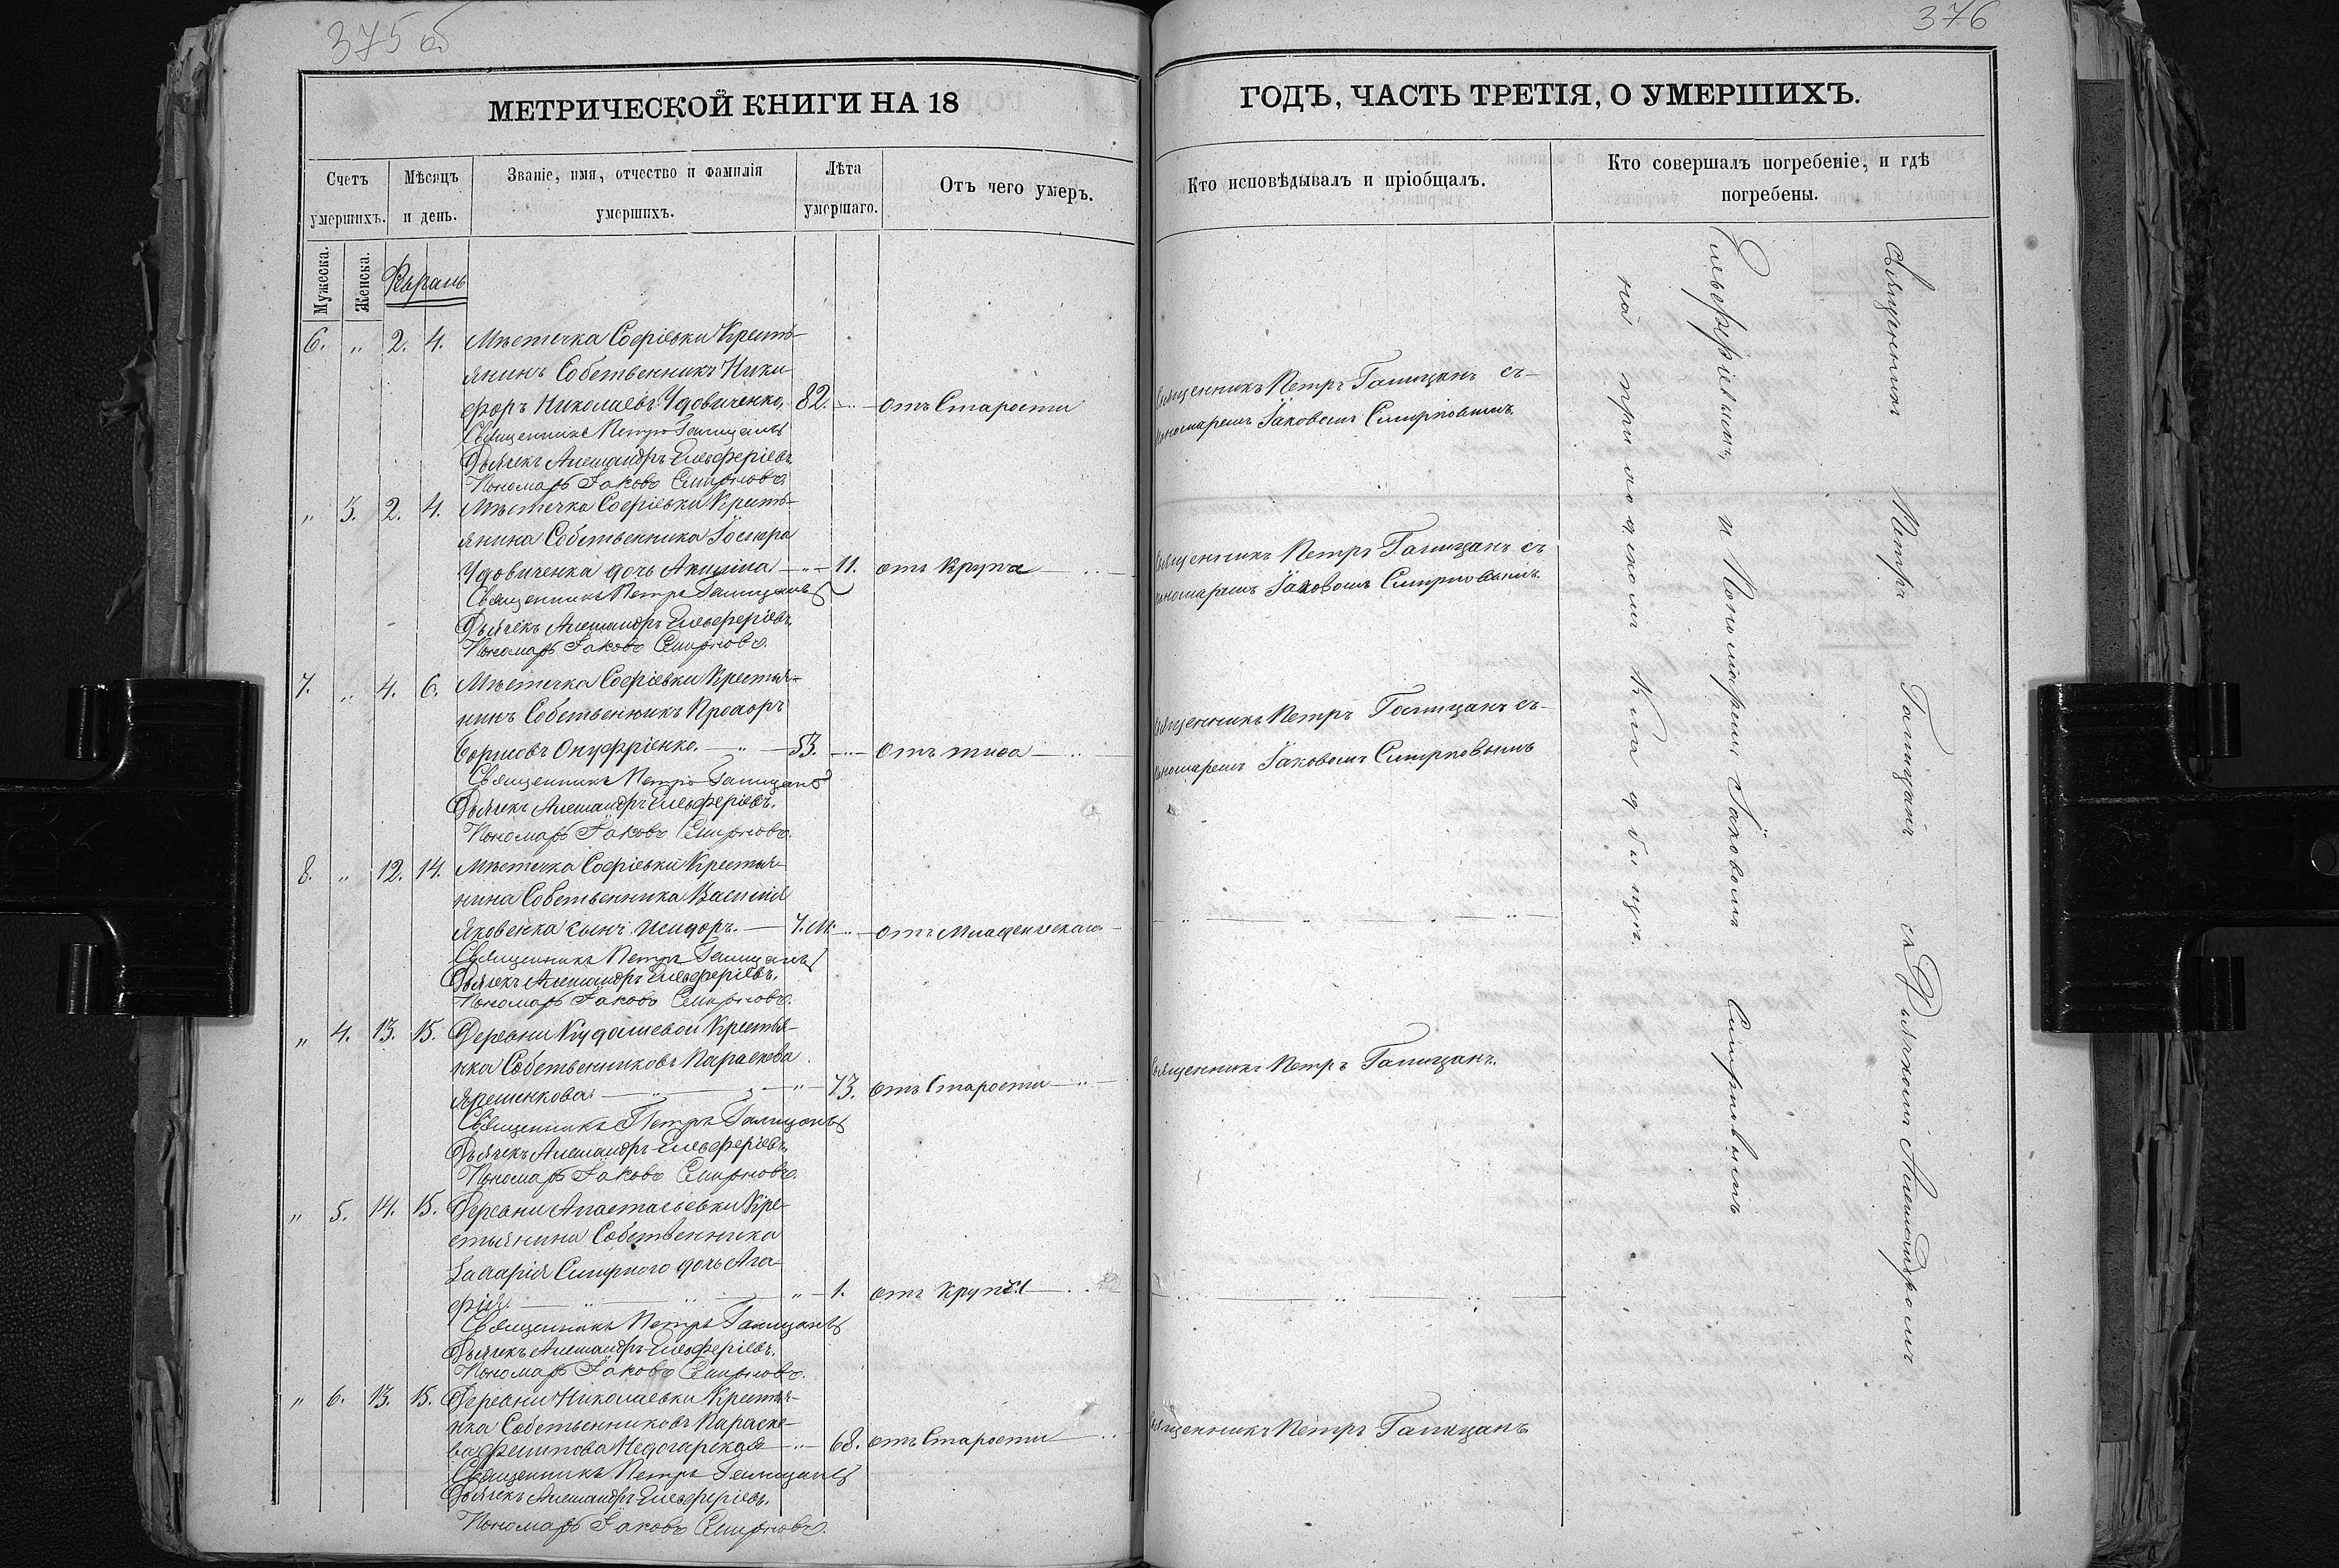 375 об
МЕТРИЧЕСКОЙ КНИГИ НА 18
Счетъ
умершихъ.
Мѣсяцъ
и день.
Званіе, имя, отчество и фамилія
умершихъ.
Лѣта
умершаго.
Отъ чего умеръ.
Мужеска.
Женска.
Февраль
6. „ 2. 4. Мѣстечка Софіевки Кресть-
янинъ Собственникъ Ники-
форъ Николаевъ Удовиченко, 82. отъ Старости
Священникъ Петръ Галицанъ
Дьячекъ Александръ Ельферіевъ.
Пономарь Іаковъ Смирновъ.
„ 3. 2. 4. Мѣстечка Софіевки Кресть-
янина Собственника Іосифа
Удовиченка дочь Акилина 11. отъ Крупа
Священникъ Петръ Галицанъ
Дьячекъ Александръ Ельферіевъ.
Пономарь Іаковъ Смирновъ.
7. „ 4. 6. Мѣстечка Софіевки Крестья-
нинъ Собственникъ Прохоръ
Борисовъ Онуфріенко. 53. отъ тифа
Священникъ Петръ Галицанъ
Дьячекъ Александръ Ельферіевъ.
Пономарь Іаковъ Смирновъ.
8. „ 12. 14. Мѣстечка Софіевки Крестья-
нина Собственника Василія
Яковенка сынъ Исидоръ. 7. м. отъ Младенческаго
Священникъ Петръ Галицанъ
Дьячекъ Александръ Ельферіевъ.
Пономарь Іаковъ Смирновъ.
„ 4. 13. 15. Деревни Кудашевой Крестья-
нка Собственниковъ Параскева
Ярешенкова 73. отъ Старости
Священникъ Петръ Галицанъ
Дьячекъ Александръ Ельферіевъ.
Пономарь Іаковъ Смирновъ.
„ 5. 14. 15. Деревни Анастасьевки Кре-
стьянина Собственника
Захарія Смирного дочь Ага-
фія. 1. отъ Крупа
Священникъ Петръ Галицанъ
Дьячекъ Александръ Ельферіевъ.
Пономарь Іаковъ Смирновъ.
„ 6. 13. 15. Деревни Николаевки Крестья-
нка Собственниковъ Параске-
ва Филипова Недогарская 68. отъ Старости
Священникъ Петръ Галицанъ
Дьячекъ Александръ Ельферіевъ.
Пономарь Іаковъ Смирновъ.
376
ГОДЪ, ЧАСТЬ ТРЕТІЯ, О УМЕРШИХЪ.
Кто исповѣдывалъ и пріобщалъ.
Кто совершалъ погребеніе, и гдѣ
погребены.
Священникъ Петръ Галицанъ съ
Пономаремъ Іаковомъ Смирновымъ
Священникъ Петръ Галицанъ съ
Пономаремъ Іаковомъ Смирновымъ.
Священникъ Петръ Галицанъ съ
Пономаремъ Іаковомъ Смирновымъ
Священникъ Петръ Галицанъ.
Священникъ Петръ Галицанъ
Священникъ Петръ Галицанъ съ Дьячкомъ Александромъ
Ельферріевымъ, и Пономаремъ Іаковомъ Смирновымъ
на приходскомъ Кладбищѣ.